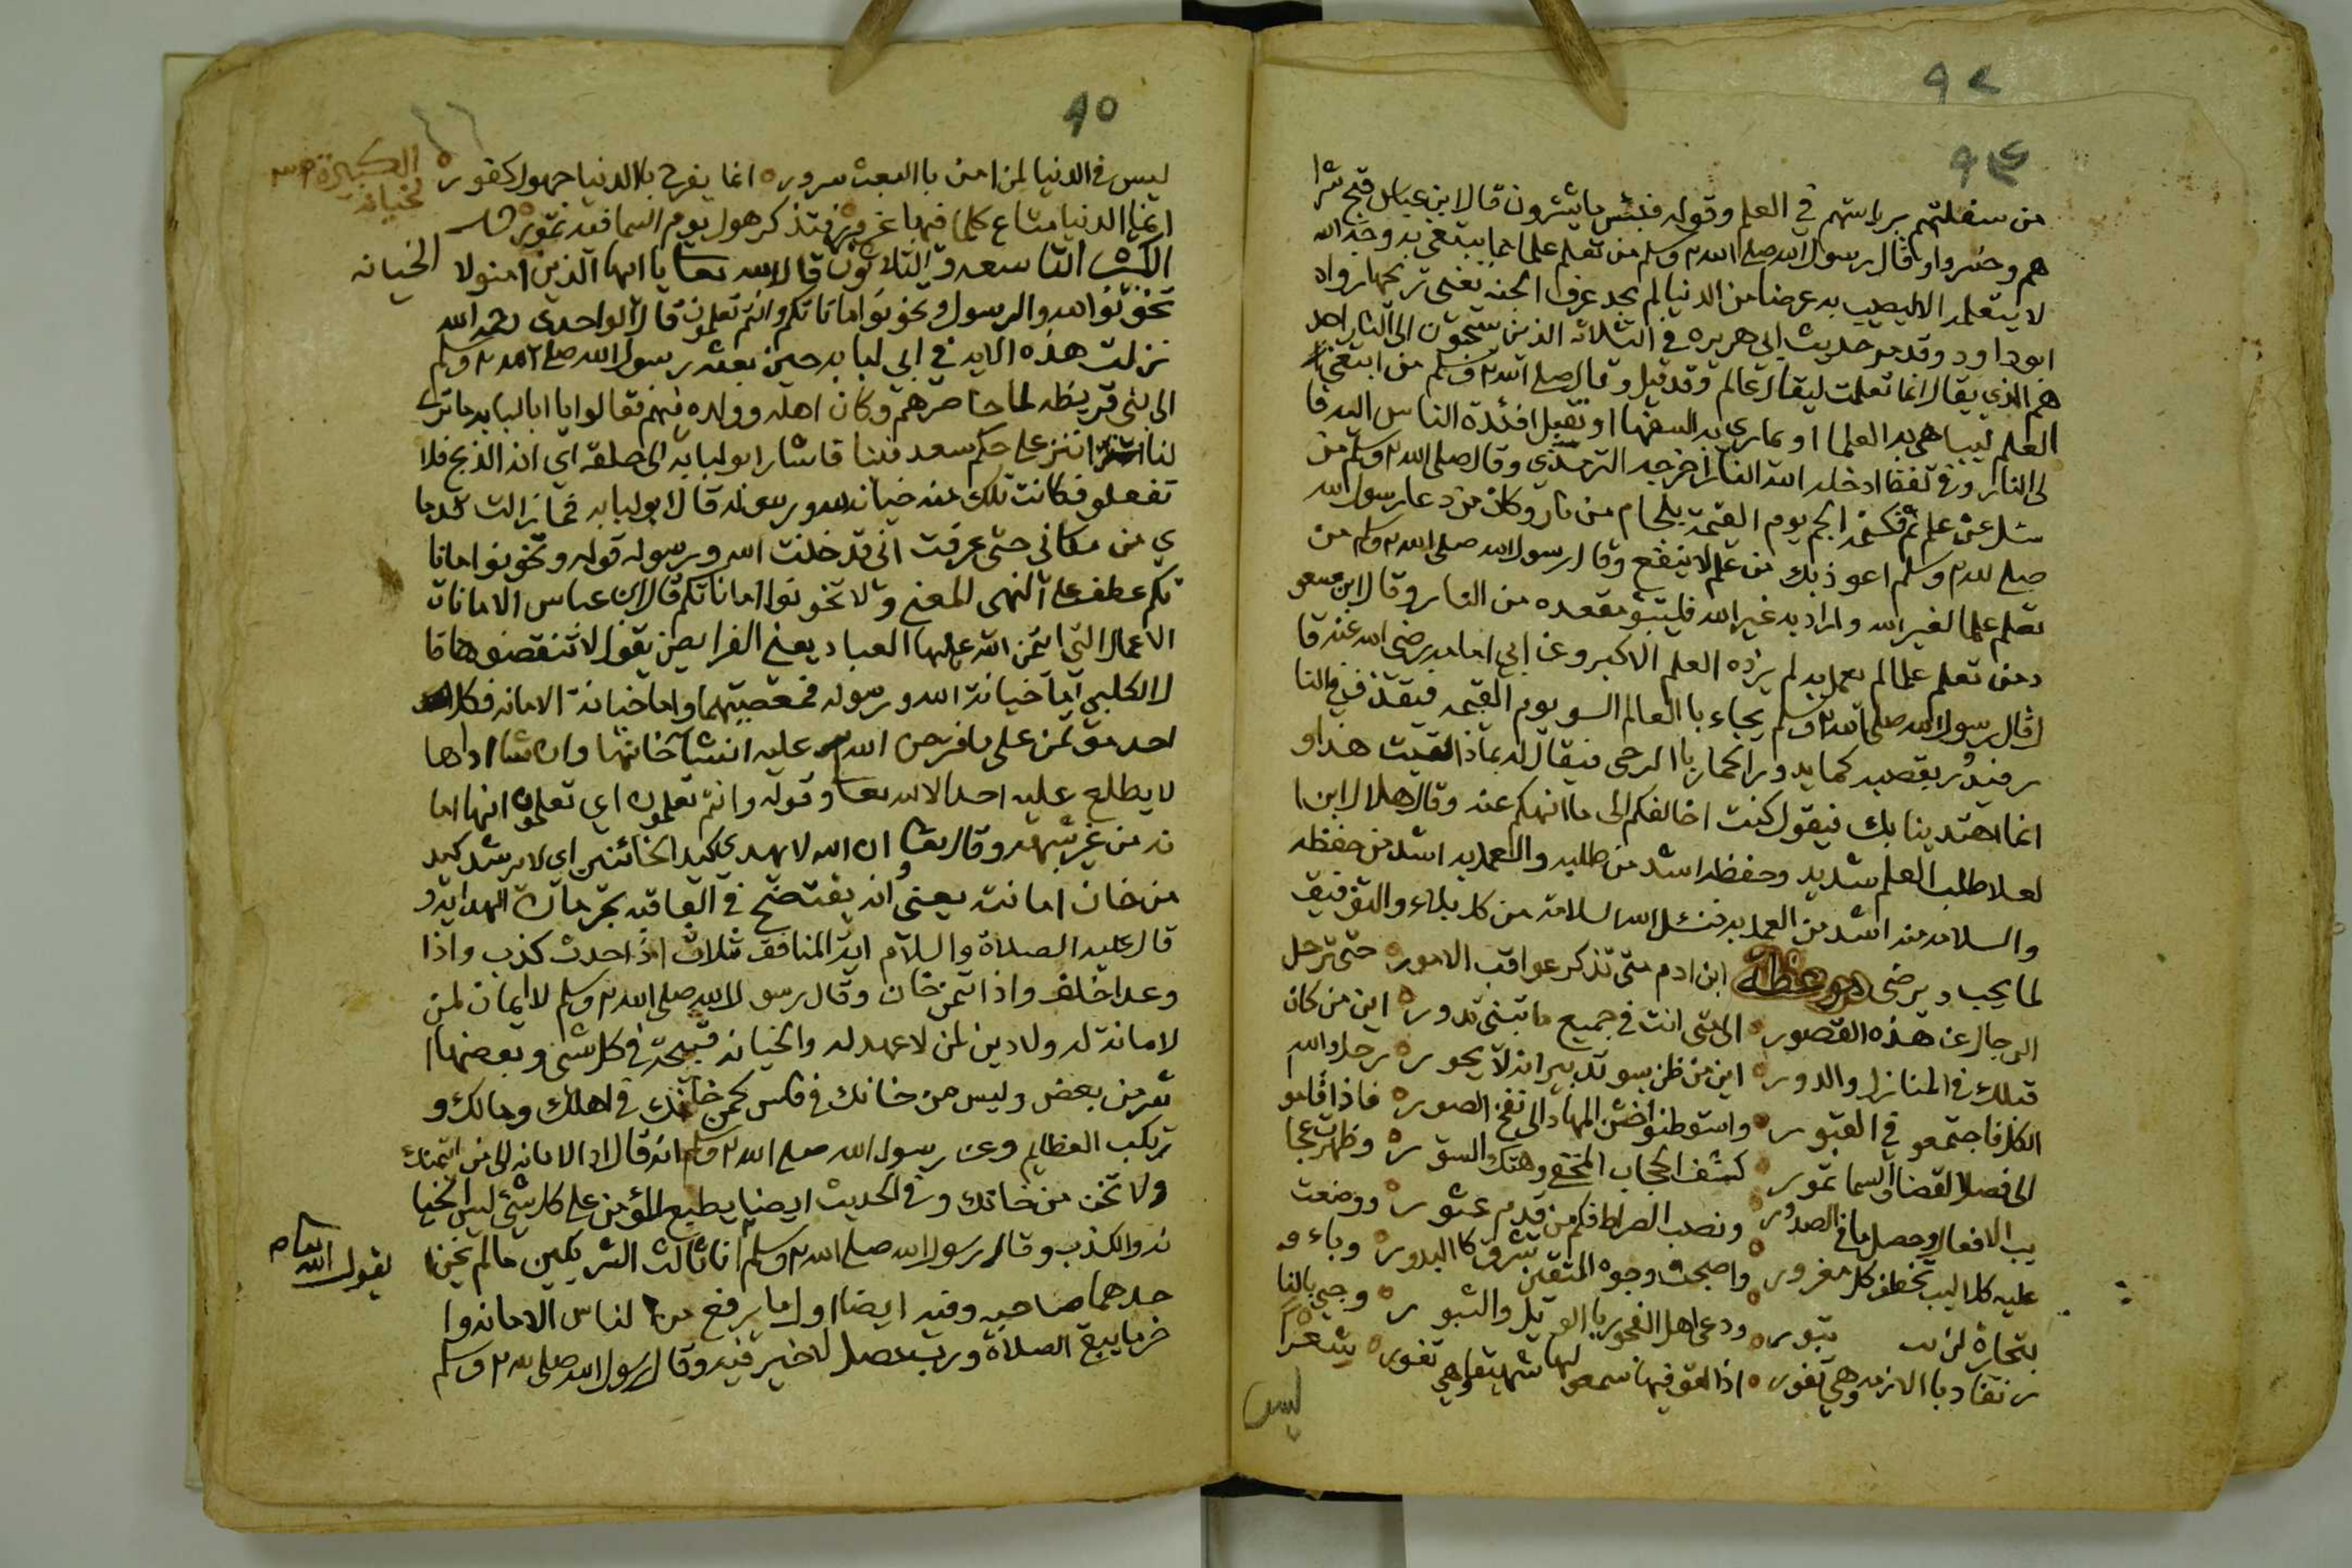 ٩٤
٩٤
من سفلتهم برياستهم في العلم وقوله فبئس ما يشترون قال ابن عباس قبح شرا
هم وخسروا وقال رسول الله صلى الله وسلم من تعلم علما مما يبتغى به وجه الله
لا يتعلمه الا ليصيب به عرضا من الدنيا لم يجد عرف الجنه يعني ريحها رواه
ابو داود وقد مر حديث ابي هريره في الثلاثه الذين يسحبون الى النار احد
هم الذي يقال انما تعلمت ليقال عالم وقد قيل وقال صلى الله وسلم من ابتغى
العلم ليباهي به العلما او يماري به السفها او تقبل افئدة الناس اليه فا
لى النار وفي لفظ ادخله الله النار اخرجه الترمذي وقال صلى الله وسلم من
سئل عن علم فكتمه الجم يوم القيمة بلجام من نار وكان من دعا رسول الله
صلى الله وسلم اعوذ بك من علم لا ينفع وقال رسول الله صلى الله وسلم من
تعلم علما لغير الله واراد به غير الله فليتبؤ مقعده من النار وقال ابن مسعو
د من تعلم علما لم يعمل به لم يزده العلم الا كبر وعن ابي امامه رضي الله عنه قا
ل قال رسول الله صلى الله وسلم يجاء با العالم السو يوم القيمه فيقذف في النا
ر فيدور بقصبه كما يدور الحمار با الرحى فيقال له بماذا لقيت هذا و
انما اهتدينا بك فيقول كنت اخالفكم الى ما انهكم عنه وقال هلال ابن ا
لعلا طلب العلم شديد وحفظه اشد من طلبه والعمل به اشد من حفظه
والسلامه منه اشد من العمل به فنسئل الله السلامة من كل بلاء والتوفيق
لما يحب ويرضى موعظة ابن ادم متى تذكر عواقب الامور حتى ترحل
الرحال عن هذه القصور الى متى انت في جميع ما تبني تدور اين من كان
قبلك في المنازل والدور اين من ظن بسو تدبيره انه لا يحور رحل والله
الكل فاجتمعو في القبور واستوطنو اخشن المهاد الى نفخ الصور فاذا قامو
الى فصل القضا والسما تمور كشف الحجاب المخفي وهتك الستور وظهرت عجا
يب الافعال وحصل ما في الصدور ونصب الصراط فكم من قدم عثور ووضعت
عليه كلاليب تخطف كل مغرور واصبحت وجوه المتقين تشرق كا البدور وباء و
بتجارة لن تبور ودعى اهل الفجور يا الويل والثبور وجيء بالنا
ر تقاد با الازمه وهي تفور اذا القو فيها سمعو لها شهيقا وهي تفور شعر
ليس
٩٥
ليس في الدنيا لمن امن با البعث سرور انما يفرح با الدنيا جهول كفور
الكبيرة ٣٩
لخيانه
انما الدنيا متاع كلما فيها غرور فتذكر هول يوم السما فيه تمور
الكبيرة التاسعه والثلاثون قال الله تعالى يا ايها الذين امنو لا الخيانه
تخونو الله والرسول وتخونو اماناتكم وانتم تعلمون قال الواحدي رحمه الله
نزلت هذه الايه في ابي لبابه حين بعثه رسول الله صلى الله وسلم
الى بني قريظه لما حاصرهم وكان اهله وولده فيهم فقالوا يا ابا لبابه ما ترى
لنا اننزل على حكم سعد فينا فاشار ابو لبابه الى حلقه اي انه الذبح فلا
تفعلو فكانت تلك منه خيانه لله ورسوله قال ابو لبابه فما زالت قدما
ي من مكاني حتى عرفت اني قد خنت الله ورسوله قوله وتخونو امانا
تكم عطف على النهي المعنى ولا تخونوا اماناتكم قال ابن عباس الامانات
الاعمال التي ائتمن الله عليها العباد يعني الفرايض يقول لا تنقضوها قا
ل الكلبي اما خيانة الله ورسوله فمعصيتهما واما خيانة الامانه فكل
احد مؤتمن على ما فترض الله عليه ان شا خانها وان شا اداها
لا يطلع عليه احد الا الله تعالى وقوله وانتم تعلمون اي تعلمون انها اما
نه من غير شبهة وقال تعالى ان الله لا يهدي كيد الخائنين اي لا يرشد كيد
من خان امانته يعني انه يفتضح في العاقبه بحرمان الهدايه و
قال عليه الصلاة والسلام اية المنافق ثلاث اذا حدث كذب واذا
وعد اخلف واذا ائتمن خان وقال رسول الله صلى الله وسلم لا ايمان لمن
لا مانة له ولا دين لمن لا عهد له والخيانه قبيحة في كل شي وبعضها ا
شر من بعض وليس من خانك في فلس كمن خانك في اهلك ومالك و
تركب العظايم وعن رسول الله صلى الله وسلم انه قال اد الامانه الى من ائتمنك
ولا تخن من خانك وفي الحديث ايضا يطبع المؤمن على كل شيء ليس الخيا
نه والكذب وقال رسول الله صلى الله وسلم انا ثالث الشريكين ما لم يخن ا
يقول الله تعالى
حدهما صاحبه وفيه ايضا اول ما يرفع من لناس الامانه وا
خر ما يبقى الصلاة ورب مصل لا خير فيه وقال رسول الله صلى الله وسلم